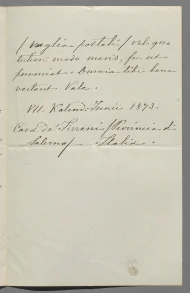 (vaglia postale) vel quo
tibi modo mavis, fac ut
perveniat. Omnia tibi bene
vertant. Vale.
VII. Kalend. Junii 1893.
Cava de' Tirreni (Provincia di
Salerno) Italia.